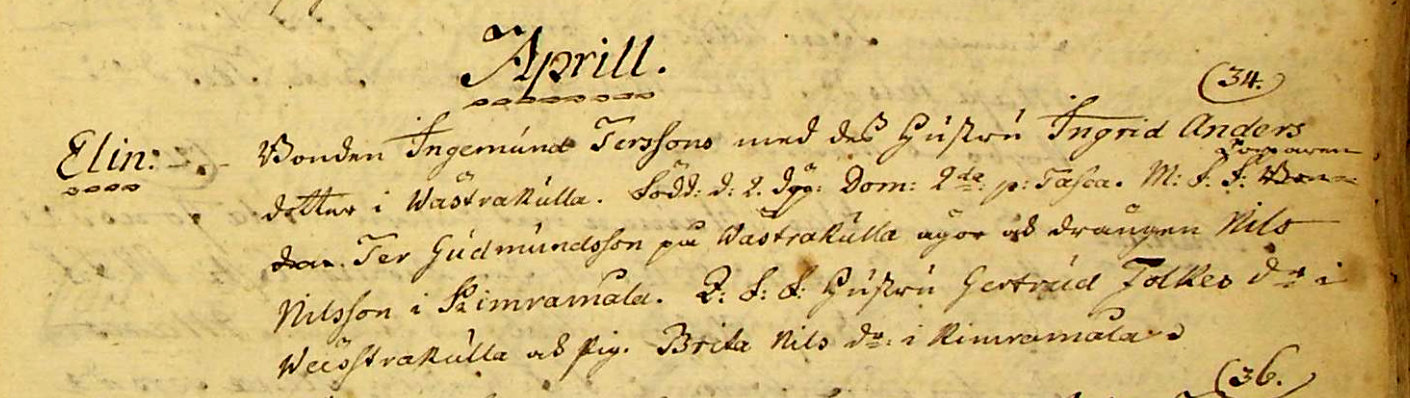 Aprill.
(34.)
Elin: Bonden Ingemund Terssons med des Hustru Ingrid Anders
Torparen
dotter i Wästrakulla. Född: d: 2. döp: Dom: 2da: p: Pasca. M: F. F. Bon-
den. Ter Gudmundsson på Wästrakulla ägor ock drängen Nils
Nilsson i Rimramåla. Q: F: F: Hustru Gertrud Folkes dr i
Weästrakulla ock Pig. Brita Nils dr: i Rimramåla
(36.)